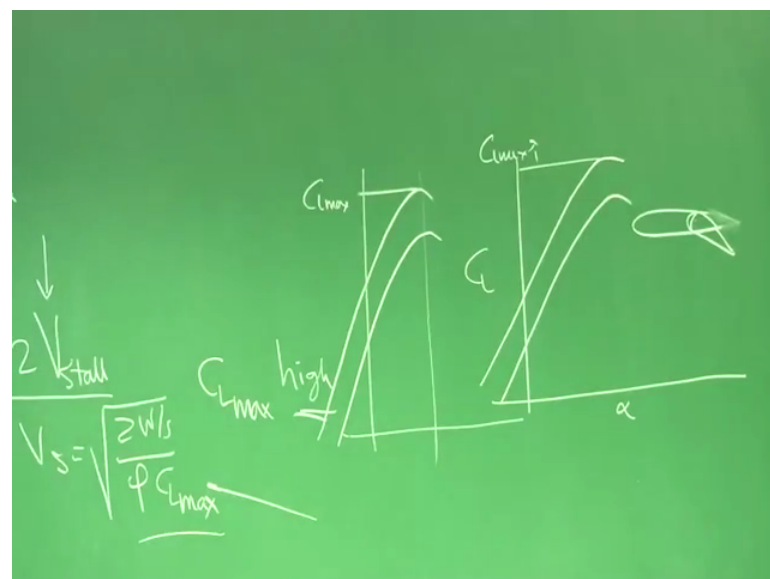 2 Vstall
Vs = √(2W/s / ρ CLmax)
CLmax high
CLmax
CLmax↑
CL
α